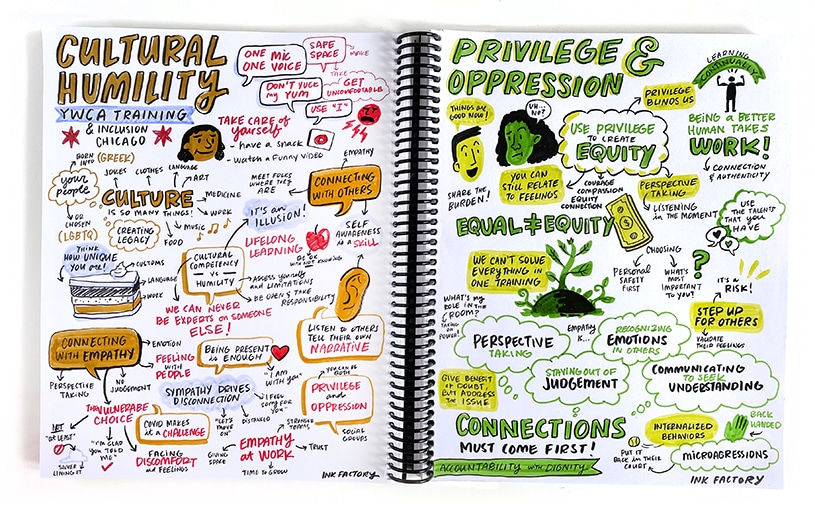 CULTURAL
HUMILITY
YWCA TRAINING
& INCLUSION
CHICAGO
ONE MIC
ONE VOICE
SAFE
SPACE
MAKE
TAKE
DON'T YUCK
my YUM
GET
UNCOMFORTABLE
USE "I"
TAKE CARE of
yourself
- have a snack
- watch a funny video
BORN
INTO
(GREEK)
your
people
OR
CHOSEN
(LGBTQ)
JOKES
CLOTHES
LANGUAGE
ART
CULTURE
IS SO MANY THINGS!
MEDICINE
WORK
MUSIC
FOOD
CREATING
LEGACY
MEET FOLKS
WHERE THEY
ARE
EMPATHY
CONNECTING
WITH OTHERS
IT'S an
ILLUSION!
SELF
AWARENESS
is a SKILL
THINK
HOW UNIQUE
YOU are!
CUSTOMS
LANGUAGE
WORK
CULTURAL
COMPETENCY
VS
HUMILITY
LIFELONG
LEARNING
BE OK
WITH NOT KNOWING
ASSESS yourself
and LIMITATIONS
BE OPEN & TAKE
RESPONSIBILITY
WE CAN NEVER
BE EXPERTS on SOMEONE
ELSE!
LISTEN TO OTHERS
TELL THEIR OWN
NARRATIVE
CONNECTING
WITH EMPATHY
EMOTION
FEELING
WITH
PEOPLE
PERSPECTIVE
TAKING
NO
JUDGEMENT
BEING PRESENT
is ENOUGH
"I AM
WITH YOU"
SYMPATHY DRIVES
DISCONNECTION
"I FEEL
SORRY FOR
YOU"
"LET'S
MOVE
ON"
DISTANCED
YOU CAN BE
BOTH
PRIVILEGE
and
OPPRESSION
SOCIAL
GROUPS
VULNERABLE
CHOICE
NOT
"AT LEAST"
SILVER
LINING IT
"I'M GLAD
YOU TOLD
ME"
COVID MAKES
it a CHALLENGE
FACING
DISCOMFORT
and FEELINGS
EMPATHY
at WORK
GIVING
SPACE
STRONGER
TEAMS
TRUST
TIME to GROW
INK FACTORY
PRIVILEGE &
OPPRESSION
LEARNING
CONTINUALLY
THINGS are
GOOD NOW!
UH...
NO?
PRIVILEGE
BLINDS US
USE PRIVILEGE
TO CREATE
EQUITY
BEING a BETTER
HUMAN TAKES
WORK!
CONNECTION
& AUTHENTICITY
SHARE THE
BURDEN!
YOU CAN
STILL RELATE
TO FEELINGS
COURAGE
COMPASSION
EQUITY
CONNECTION
PERSPECTIVE
TAKING
LISTENING
in the MOMENT
USE
THE TALENTS
THAT YOU
HAVE
EQUAL ≠ EQUITY
WE CAN'T SOLVE
EVERYTHING IN
ONE TRAINING
CHOOSING
PERSONAL
SAFETY
FIRST
WHAT'S
MOST
IMPORTANT
TO YOU?
?
IT'S a
RISK!
STEP UP
FOR OTHERS
VALIDATE
THEIR FEELINGS
WHAT'S my
ROLE IN the
ROOM?
TAKING
on
POWER!
PERSPECTIVE
TAKING
EMPATHY
IS...
RECOGNIZING
EMOTIONS
IN OTHERS
STAYING OUT OF
JUDGEMENT
COMMUNICATING
to SEEK
UNDERSTANDING
GIVE BENEFIT
OF DOUBT,
BUT ADDRESS
THE ISSUE
CONNECTIONS
MUST COME FIRST!
ACCOUNTABILITY WITH DIGNITY
INTERNALIZED
BEHAVIORS
BACK
HANDED
PUT IT
BACK IN THEIR
COURT
MICROAGRESSIONS
INK FACTORY